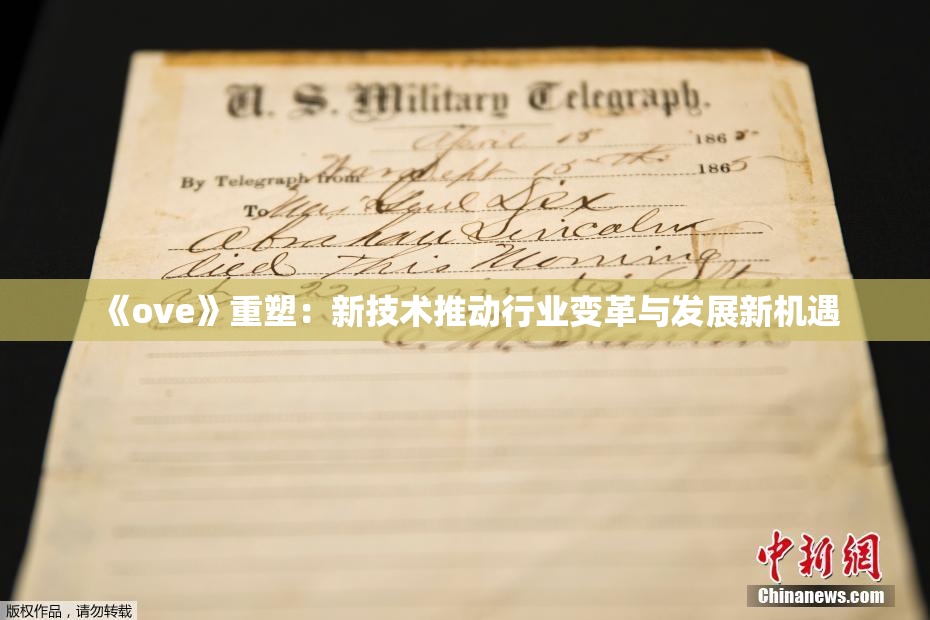 U. S. Military Telegraph.
April 15 1865
By Telegraph from War Dept 15th 1865
To Maj Genl Dix
Abraham Lincoln
died This Morning
at 22 minutes after
《ove》重塑：新技术推动行业变革与发展新机遇
中新网
Chinanews.com
版权作品，请勿转载